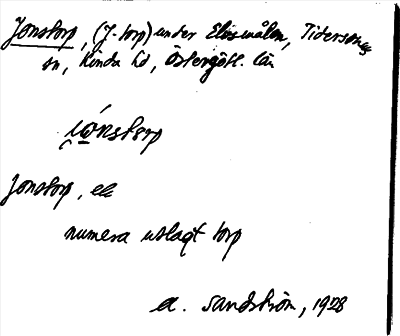 Jonstorp, (J-torp) under Elösmålen, Tidersrums
sn, Kinda hd, Östergötl. län
jónstorp
Jonstorp, ek
numera utlagt torp
A. Sandström, 1928